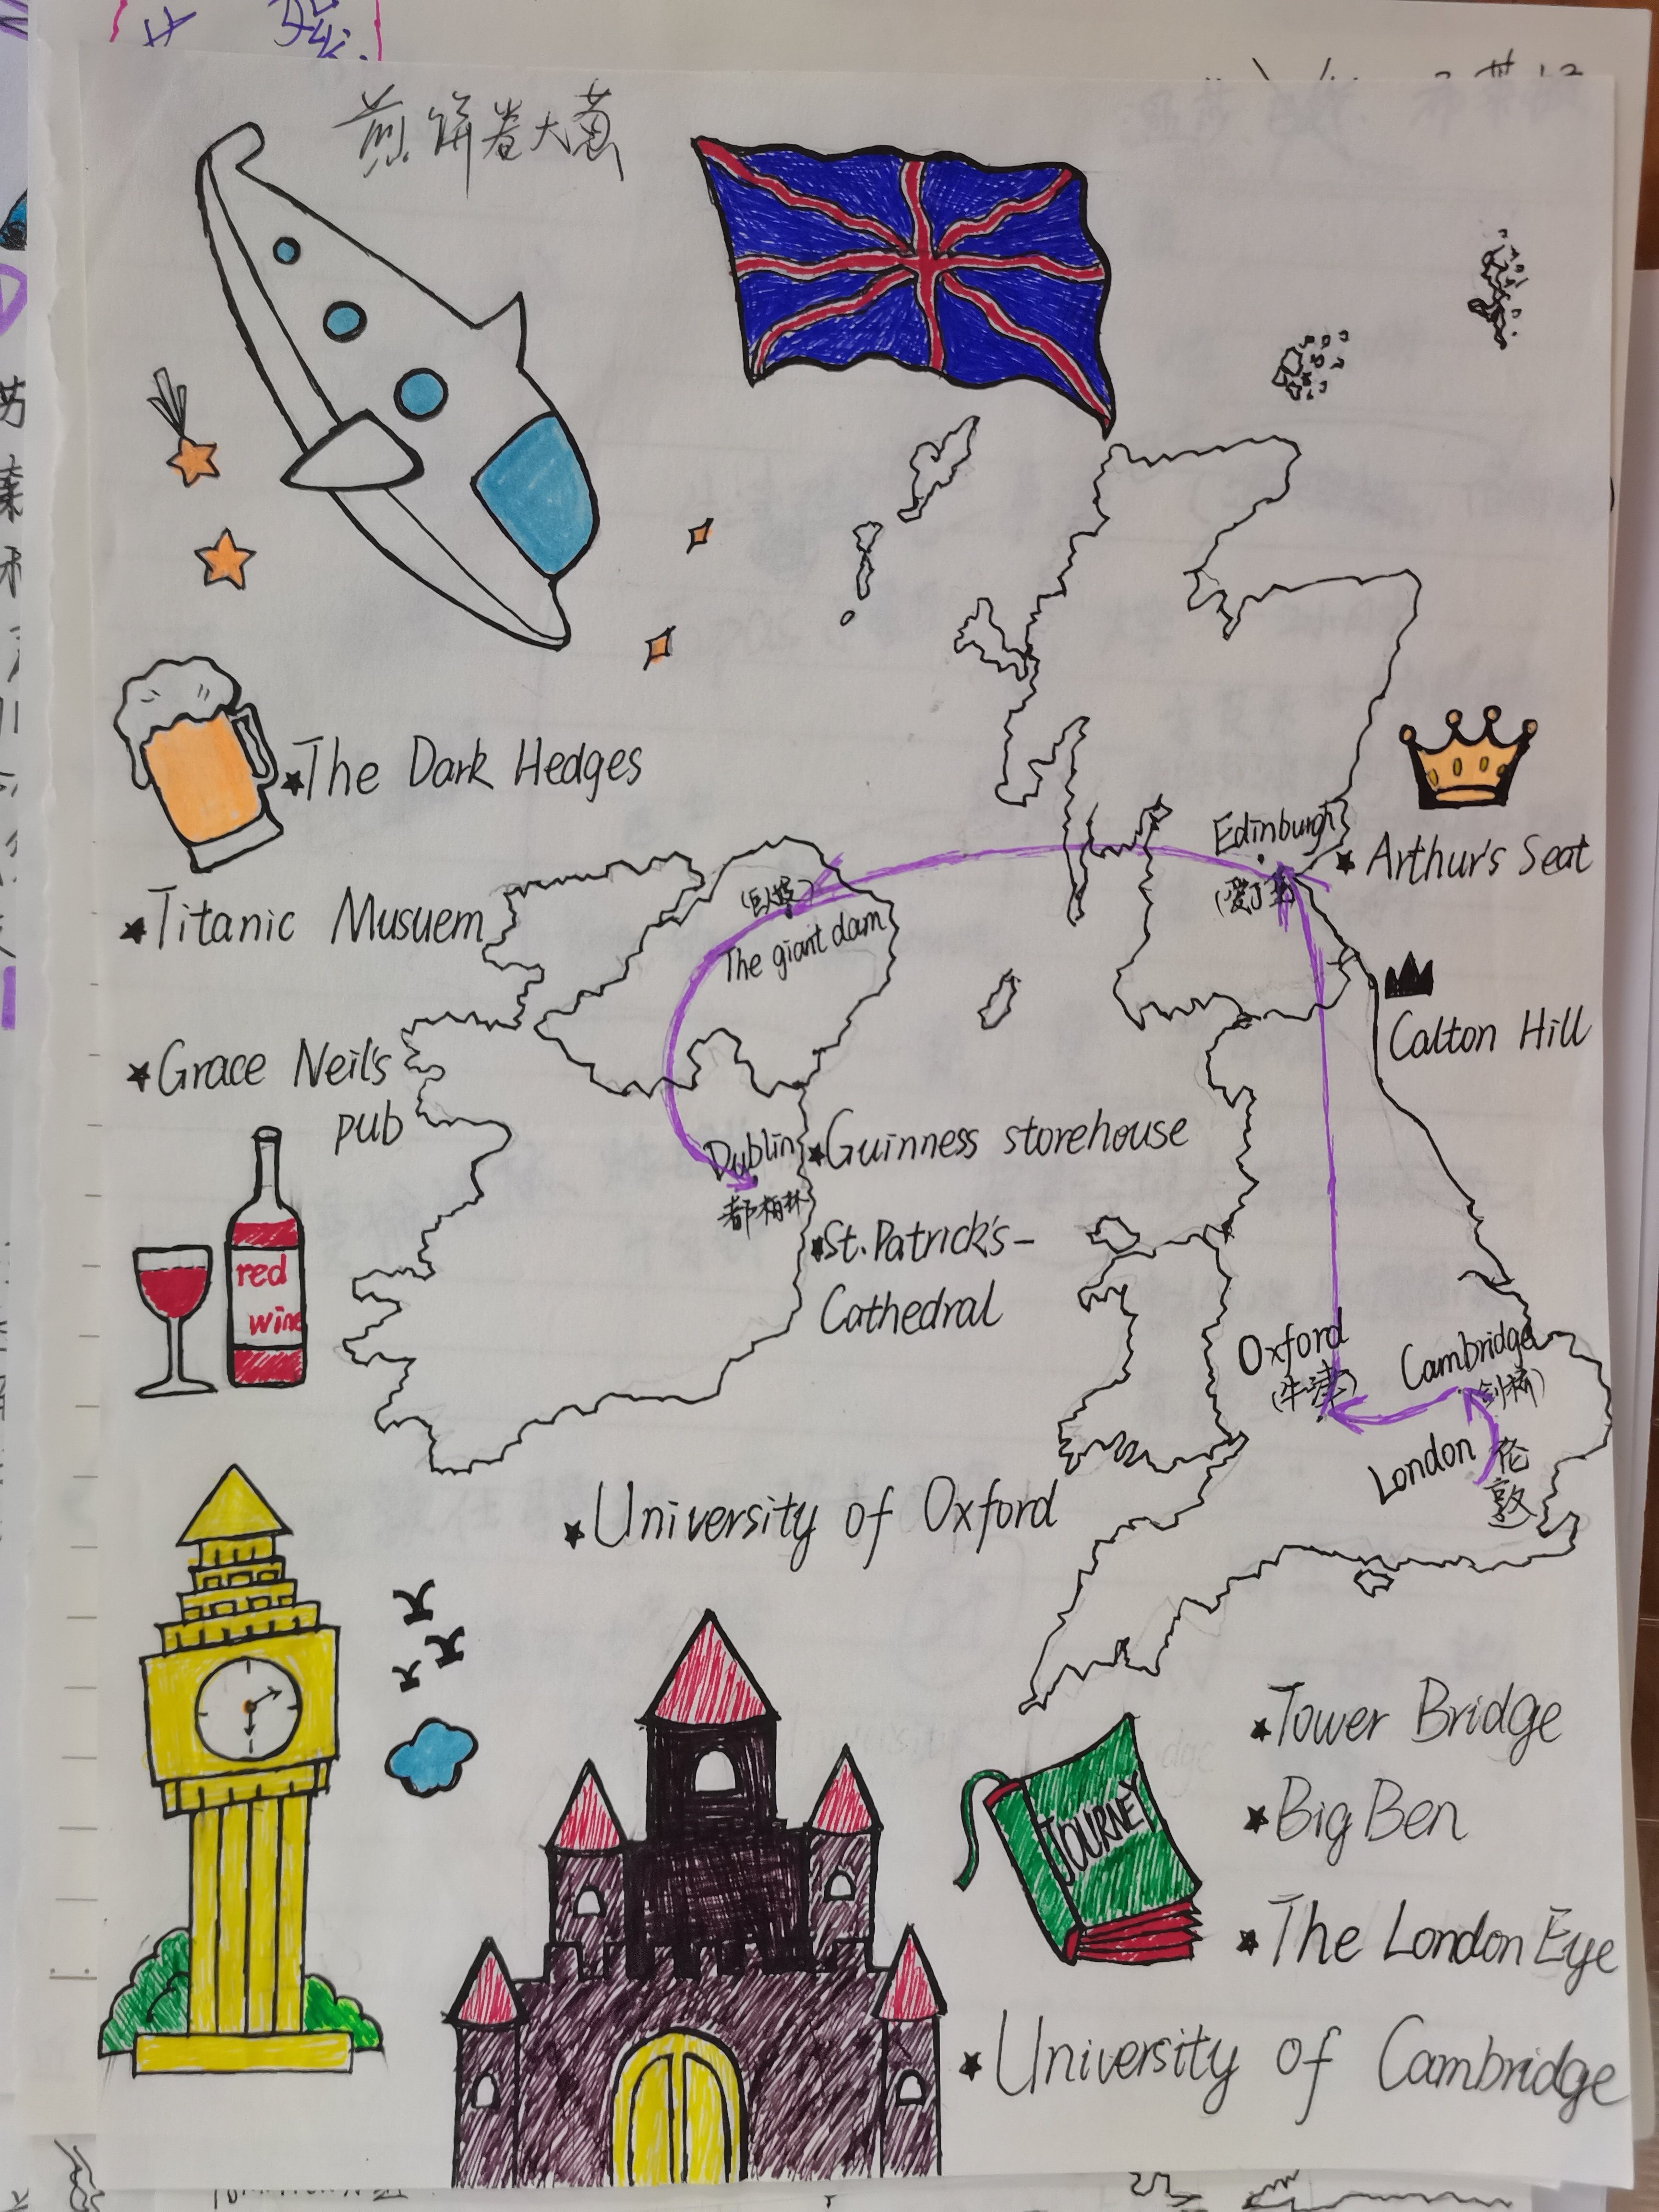 煎饼卷大葱
★The Dark Hedges
Edinburgh
★Arthur's Seat
(爱丁堡)
★Titanic Musuem
(巨人堤)
The giant dam
Calton Hill
★Grace Neil's
pub
Dublin
★Guinness storehouse
都柏林
★St.Patrick's-
Cathedral
red
wine
Oxford
(牛津)
Cambridge
(剑桥)
London
伦
敦
★University of Oxford
★Tower Bridge
JOURNEY
★Big Ben
★The London Eye
★University of Cambridge